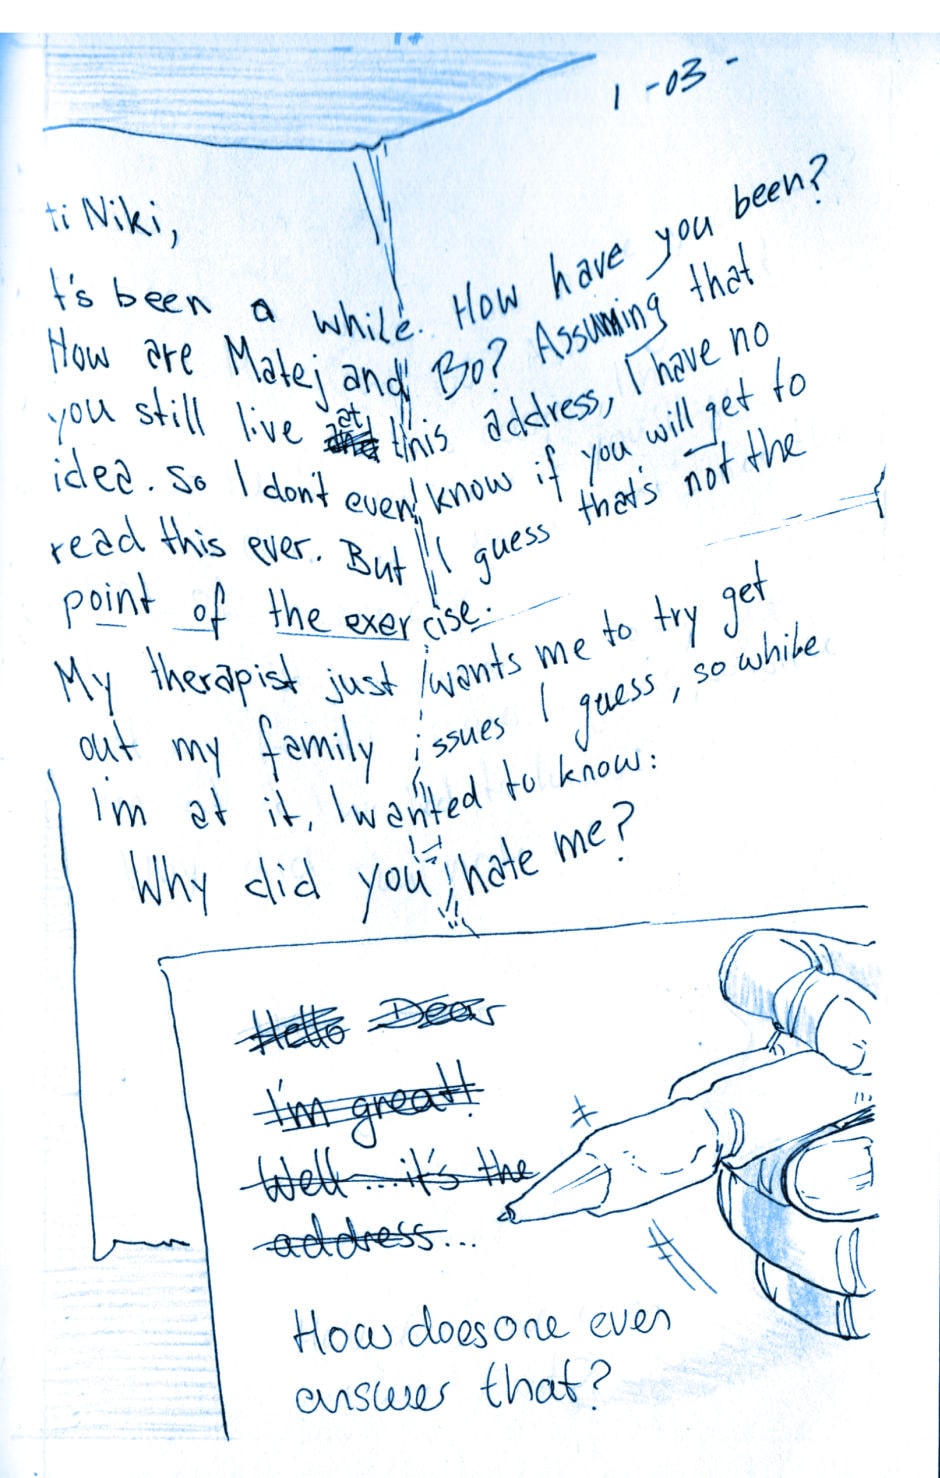 1 -03-
ti Niki,
t's been a while. How have you been?
How are Matej and Bo? Assuming that
you still live at this address, I have no
idea. So I don't even know if you will get to
read this ever. But I guess that's not the
point of the exercise.
My therapist just wants me to try get
out my family issues I guess, so while
I'm at it, I wanted to know:
Why did you hate me?
Hello Dear
I'm great!
Well...it's the
address...
How does one even
answer that?